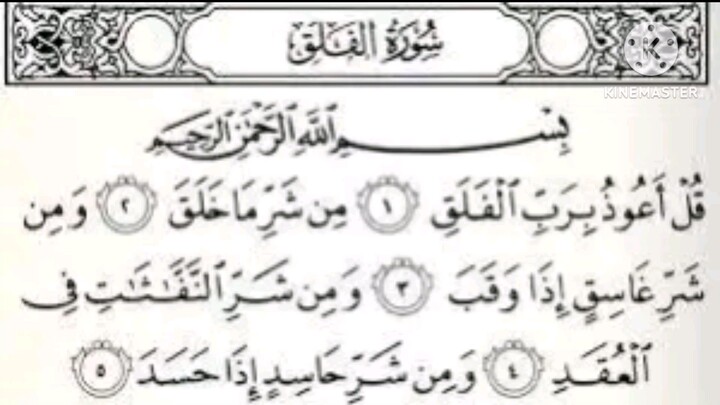 سُورَةُ الفَلَقِ
KINEMASTER
بِسْمِ ٱللَّهِ ٱلرَّحْمَٰنِ ٱلرَّحِيمِ
قُلْ أَعُوذُ بِرَبِّ ٱلْفَلَقِ ١ مِن شَرِّ مَا خَلَقَ ٢ وَمِن
شَرِّ غَاسِقٍ إِذَا وَقَبَ ٣ وَمِن شَرِّ ٱلنَّفَّٰثَٰتِ فِى
ٱلْعُقَدِ ٤ وَمِن شَرِّ حَاسِدٍ إِذَا حَسَدَ ٥